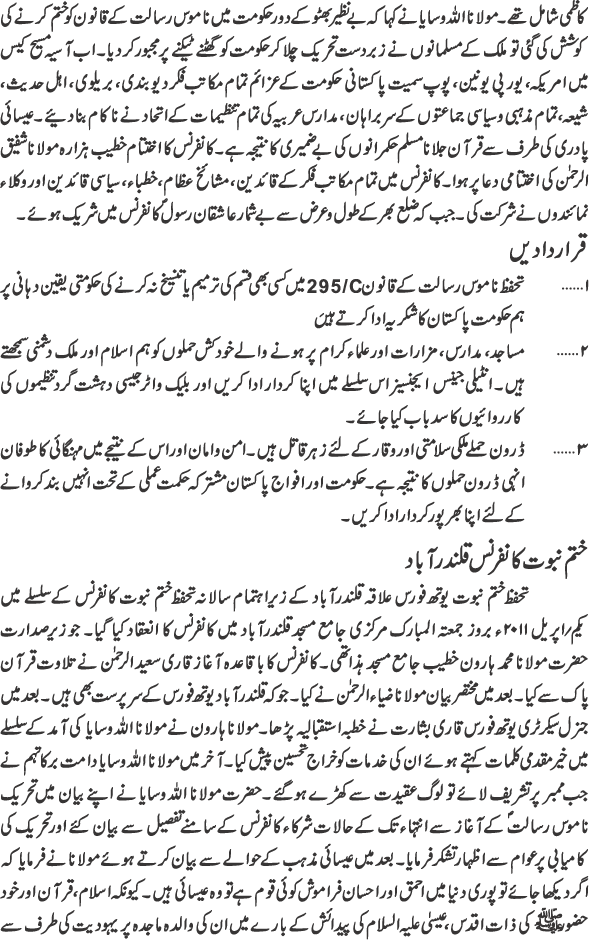 کاظمی شامل تھے۔ مولانا اللہ وسایا نے کہا کہ بے نظیر بھٹو کے دور حکومت میں ناموس رسالت کے قانون کو ختم کرنے کی
کوشش کی گئی تو ملک کے مسلمانوں نے زبردست تحریک چلا کر حکومت کو گھٹنے ٹیکنے پر مجبور کردیا۔ اب آسیہ مسیح کیس
میں امریکہ، یورپی یونین، پوپ سمیت پاکستانی حکومت کے عزائم تمام مکاتب فکر دیوبندی، بریلوی، اہل حدیث،
شیعہ، تمام مذہبی و سیاسی جماعتوں کے سربراہان، مدارس عربیہ کی تمام تنظیمات کے اتحاد نے ناکام بنا دیئے۔ عیسائی
پادری کی طرف سے قرآن جلانا مسلم حکمرانوں کی بے ضمیری کا نتیجہ ہے۔ کانفرنس کا اختتام خطیب ہزارہ مولانا شفیق
الرحمٰن کی اختتامی دعا پر ہوا۔ کانفرنس میں تمام مکاتب فکر کے قائدین، مشائخ عظام، خطباء، سیاسی قائدین اور وکلاء
نمائندوں نے شرکت کی۔ جب کہ ضلع بھر کے طول و عرض سے بے شمار عاشقان رسولؐ کانفرنس میں شریک ہوئے۔
قراردادیں
۱...... تحفظ ناموس رسالت کے قانون 295/C میں کسی بھی قسم کی ترمیم یا تنسیخ نہ کرنے کی حکومتی یقین دہانی پر
ہم حکومت پاکستان کا شکریہ ادا کرتے ہیں
۲...... مساجد، مدارس، مزارات اور علماء کرام پر ہونے والے خودکش حملوں کو ہم اسلام اور ملک دشمنی سمجھتے
ہیں۔ انٹیلی جینس ایجنسیز اس سلسلے میں اپنا کردار ادا کریں اور بلیک واٹر جیسی دہشت گرد تنظیموں کی
کارروائیوں کا سدباب کیا جائے۔
۳...... ڈرون حملے ملکی سلامتی اور وقار کے لئے زہر قاتل ہیں۔ امن و امان اور اس کے نتیجے میں مہنگائی کا طوفان
انہی ڈرون حملوں کا نتیجہ ہے۔ حکومت اور افواج پاکستان مشترکہ حکمت عملی کے تحت انہیں بند کروانے
کے لئے اپنا بھرپور کردار ادا کریں۔
ختم نبوت کانفرنس قلندر آباد
تحفظ ختم نبوت یوتھ فورس علاقہ قلندر آباد کے زیر اہتمام سالانہ تحفظ ختم نبوت کانفرنس کے سلسلے میں
یکم/اپریل ۲۰۱۱ء بروز جمعتہ المبارک مرکزی جامع مسجد قلندر آباد میں کانفرنس کا انعقاد کیا گیا۔ جو زیر صدارت
حضرت مولانا محمد ہارون خطیب جامع مسجد ہذا تھی۔ کانفرنس کا باقاعدہ آغاز قاری سعید الرحمٰن نے تلاوت قرآن
پاک سے کیا۔ بعد میں مختصر بیان مولانا ضیاء الرحمٰن نے کیا۔ جو کہ قلندر آباد یوتھ فورس کے سرپرست بھی ہیں۔ بعد میں
جنرل سیکرٹری یوتھ فورس قاری بشارت نے خطبہ استقبالیہ پڑھا۔ مولانا ہارون نے مولانا اللہ وسایا کی آمد کے سلسلے
میں خیر مقدمی کلمات کہتے ہوئے ان کی خدمات کو خراج تحسین پیش کیا۔ آخر میں مولانا اللہ وسایا دامت برکاتہم نے
جب ممبر پر تشریف لائے تو لوگ عقیدت سے کھڑے ہوگئے۔ حضرت مولانا اللہ وسایا نے اپنے بیان میں تحریک
ناموس رسالتؐ کے آغاز سے انتہاء تک کے حالات شرکاء کانفرنس کے سامنے تفصیل سے بیان کئے اور تحریک کی
کامیابی پر عوام سے اظہار تشکر فرمایا۔ بعد میں عیسائی مذہب کے حوالے سے بیان کرتے ہوئے مولانا نے فرمایا کہ
اگر دیکھا جائے تو پوری دنیا میں احمق اور احسان فراموش کوئی قوم ہے تو وہ عیسائی ہیں۔ کیونکہ اسلام، قرآن اور خود
حضورﷺ کی ذات اقدس، عیسیٰ علیہ السلام کی پیدائش کے بارے میں ان کی والدہ ماجدہ پر یہودیت کی طرف سے